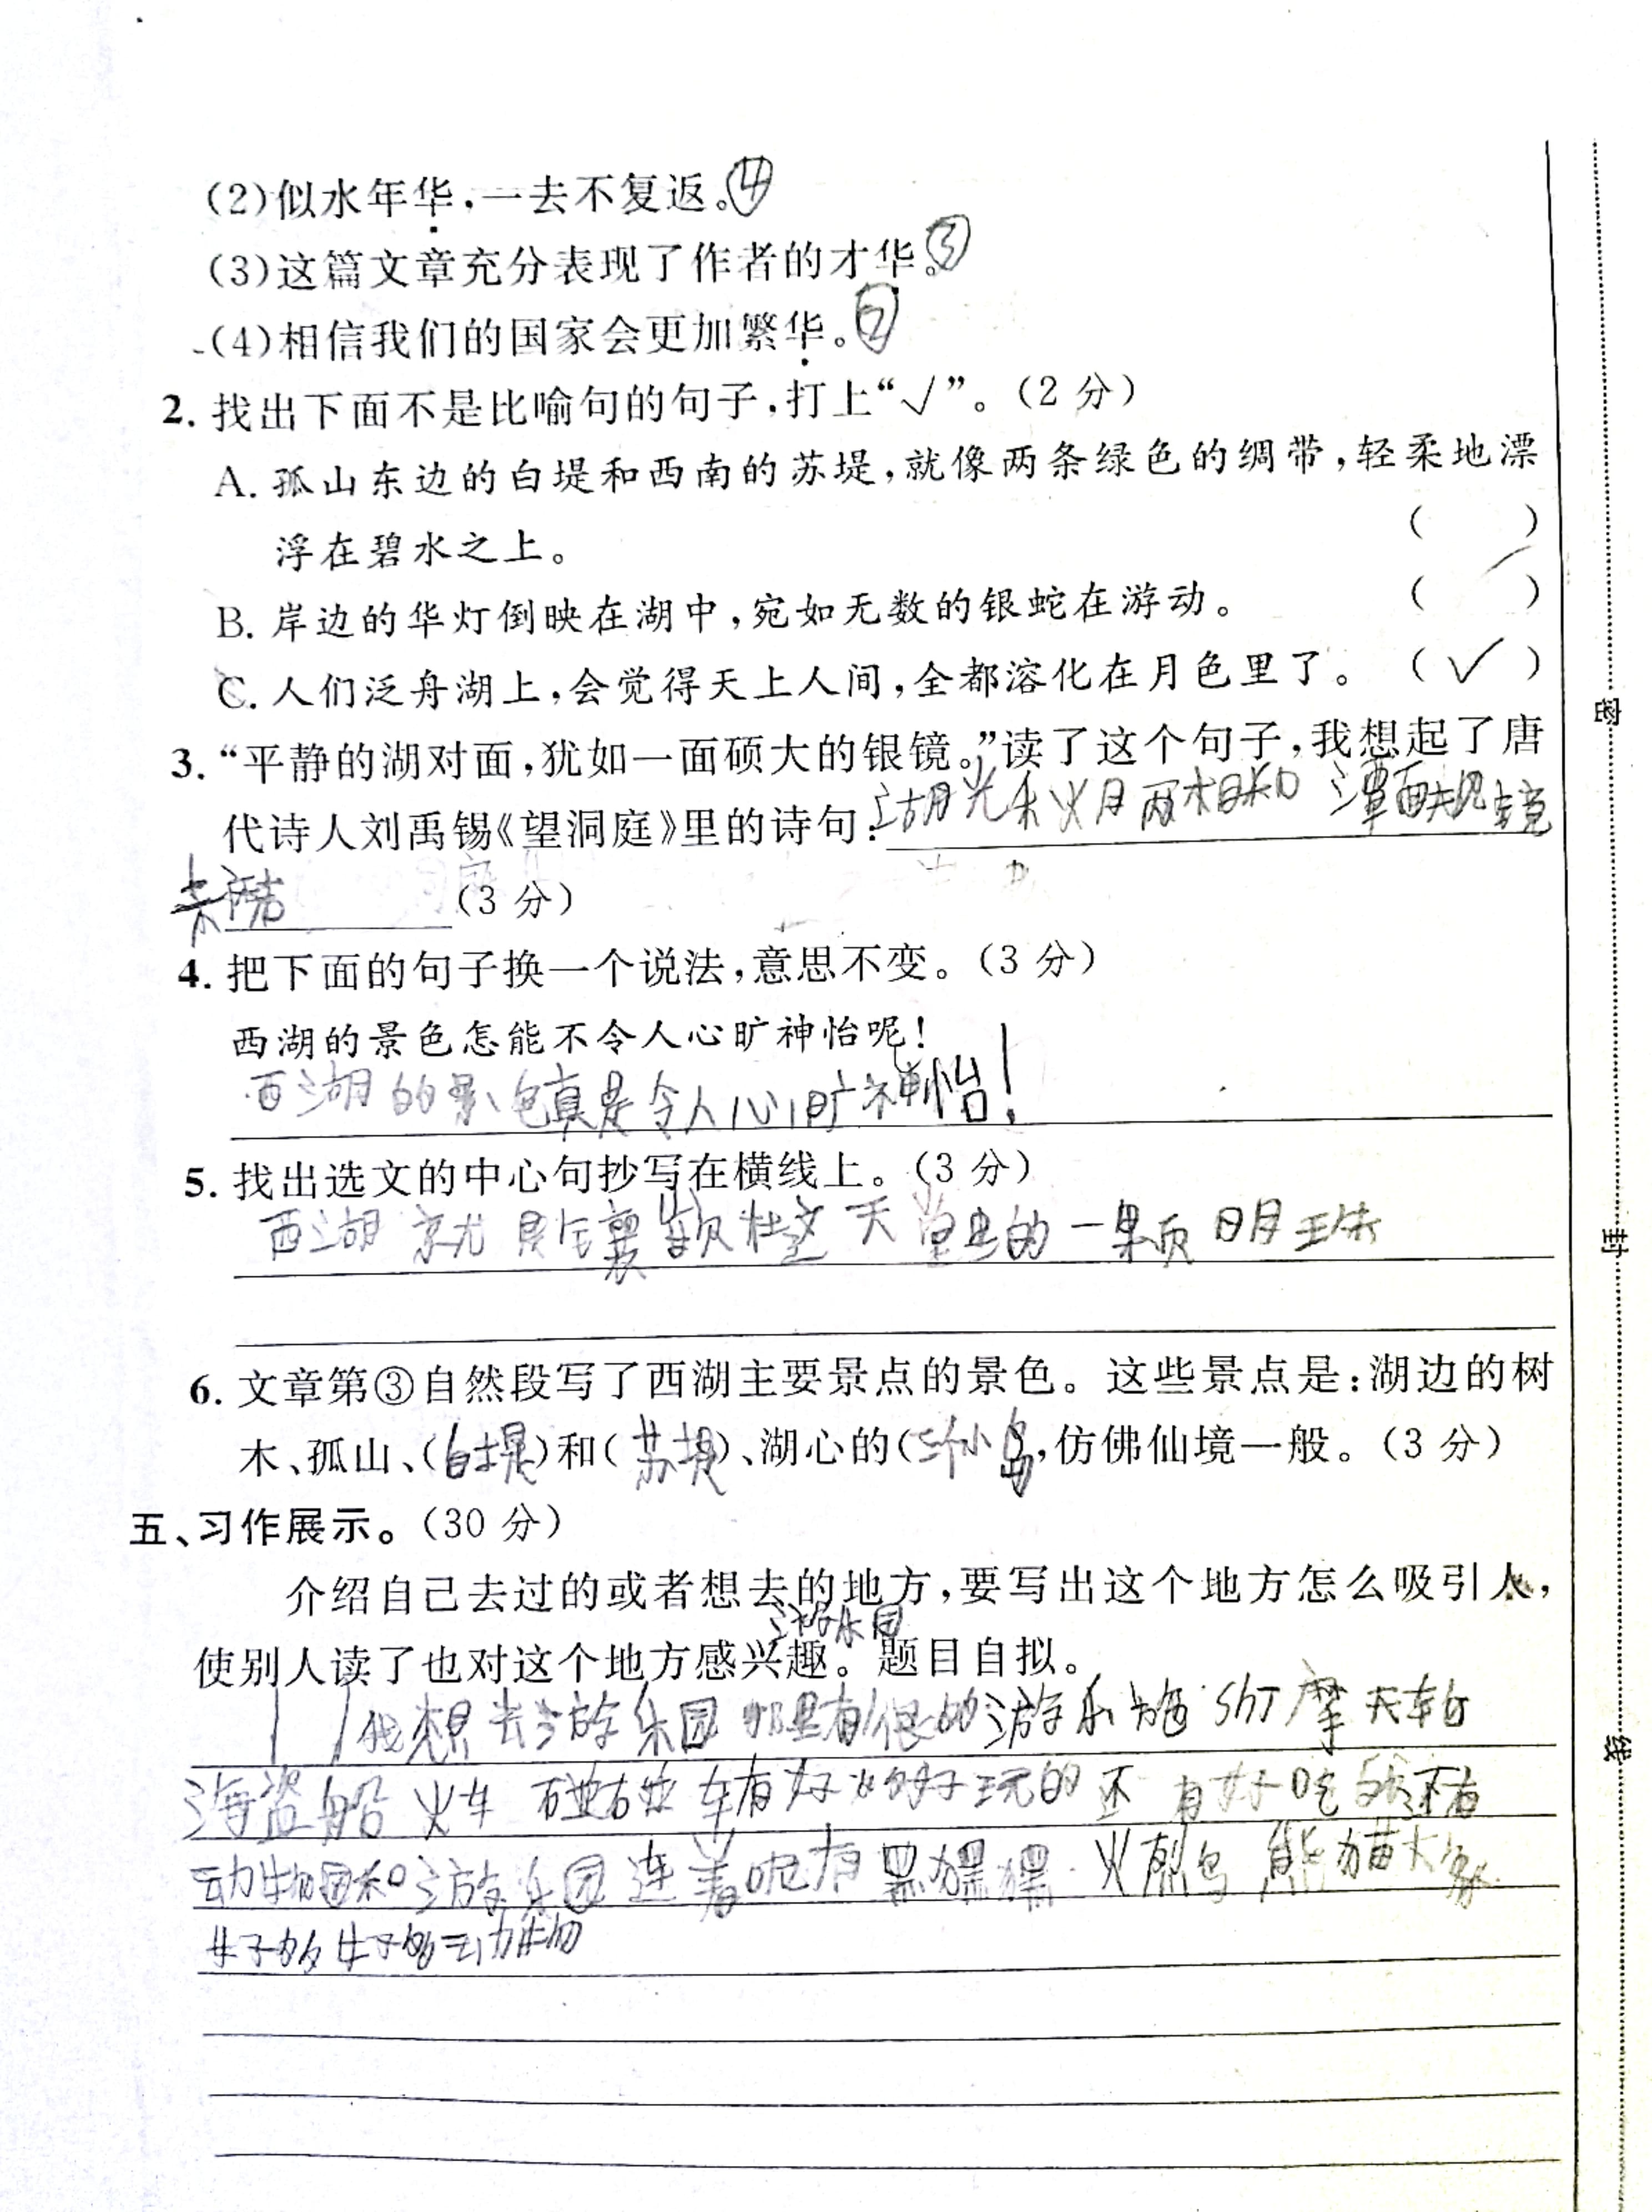 (2)似水年华,一去不复返。④
(3)这篇文章充分表现了作者的才华。③
(4)相信我们的国家会更加繁华。②
2. 找出下面不是比喻句的句子,打上“√”。(2 分)
A. 孤山东边的白堤和西南的苏堤,就像两条绿色的绸带,轻柔地漂
浮在碧水之上。 ( )
B. 岸边的华灯倒映在湖中,宛如无数的银蛇在游动。 ( )
C. 人们泛舟湖上,会觉得天上人间,全都溶化在月色里了。 (√)
3. “平静的湖对面,犹如一面硕大的银镜。”读了这个句子,我想起了唐
代诗人刘禹锡《望洞庭》里的诗句:湖光禾火月两相和 潭面规镜
未 (3 分)
4. 把下面的句子换一个说法,意思不变。(3 分)
西湖的景色怎能不令人心旷神怡呢!
西湖的景色真是令人心旷神怡!
5. 找出选文的中心句抄写在横线上。(3 分)
西湖 就是镶嵌在这天堂里的一颗明珠
6. 文章第③自然段写了西湖主要景点的景色。这些景点是:湖边的树
木、孤山、(白堤)和(苏堤)、湖心的(三个小岛,仿佛仙境一般。(3 分)
五、习作展示。(30 分)
介绍自己去过的或者想去的地方,要写出这个地方怎么吸引人,
游乐园
使别人读了也对这个地方感兴趣。题目自拟。
我想去游乐园 那里有很的游乐 摩天轮
海盗船 火车 碰碰车有好 好玩的 还有好吃 还有
动物园和游乐园连着呢有黑猩猩 火烈鸟 熊猫大象
好多好多动物
密
封
线